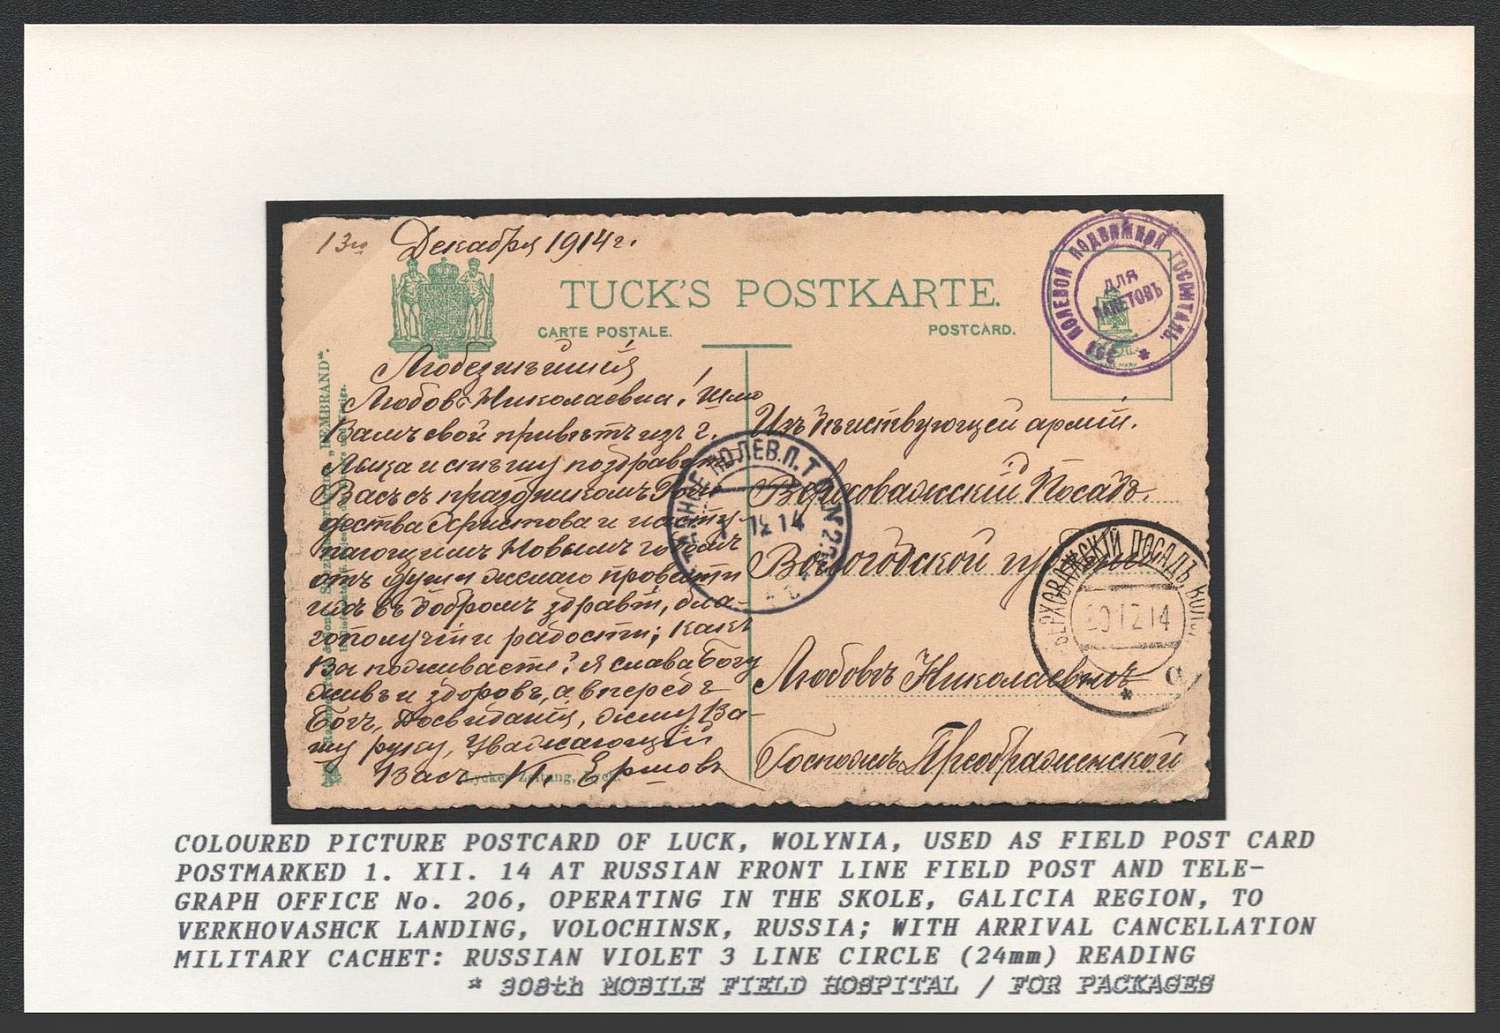 13го Декабря 1914г.
TUCK'S POSTKARTE.
CARTE POSTALE. POSTCARD.
ПОЛЕВОЙ ПОДВИЖНОЙ ГОСПИТАЛЬ
ДЛЯ
ПАКЕТОВЪ
„REMBRAND".
Любезнѣйшій
Любовь Николаевна! Шлю
Вамъ свой привѣтъ изъ г.
и спѣшу поздравить
Васъ съ праздникомъ Рож-
дества Христова и насту-
пающимъ Новымъ годомъ
отъ души желаю провести
ихъ въ добромъ здравіи, бла-
гополучіи и радости; Какъ
Вы поживаете? Я слава Богу
живъ и здоровъ, а впередъ
Богъ. Досвиданія, жму Ва-
шу руку, Уважающій
Васъ П. Ермовъ
Lycker Zeitung, Lyck.
Изъ дѣйствующей арміи.
Верховажскій Посадъ.
Вологодской
Любовь Николаевнѣ
Госпожѣ Преображенской
ПОЛЕВ.П.Т.
12 14
ВЕРХОВАЖСКІЙ ПОСАДЪ
20 12 14
COLOURED PICTURE POSTCARD OF LUCK, WOLYNIA, USED AS FIELD POST CARD
POSTMARKED 1. XII. 14 AT RUSSIAN FRONT LINE FIELD POST AND TELE-
GRAPH OFFICE No. 206, OPERATING IN THE SKOLE, GALICIA REGION, TO
VERKHOVASHCK LANDING, VOLOCHINSK, RUSSIA; WITH ARRIVAL CANCELLATION
MILITARY CACHET: RUSSIAN VIOLET 3 LINE CIRCLE (24mm) READING
* 308th MOBILE FIELD HOSPITAL / FOR PACKAGES